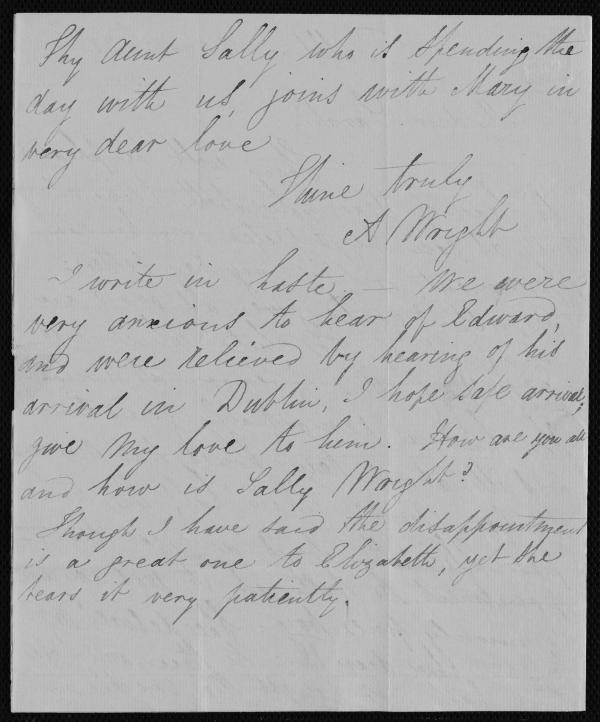 Thy Aunt Sally who is spending the
day with us, joins with Mary in
very dear love
Thine truly
A Wright
I write in haste — We were
very anxious to hear of Edward,
and were relieved by hearing of his
arrival in Dublin, I hope safe arrival;
give my love to him. How are you all
and how is Sally Wright?
Though I have said the disappointment
is a great one to Elizabeth, yet she
bears it very patiently.